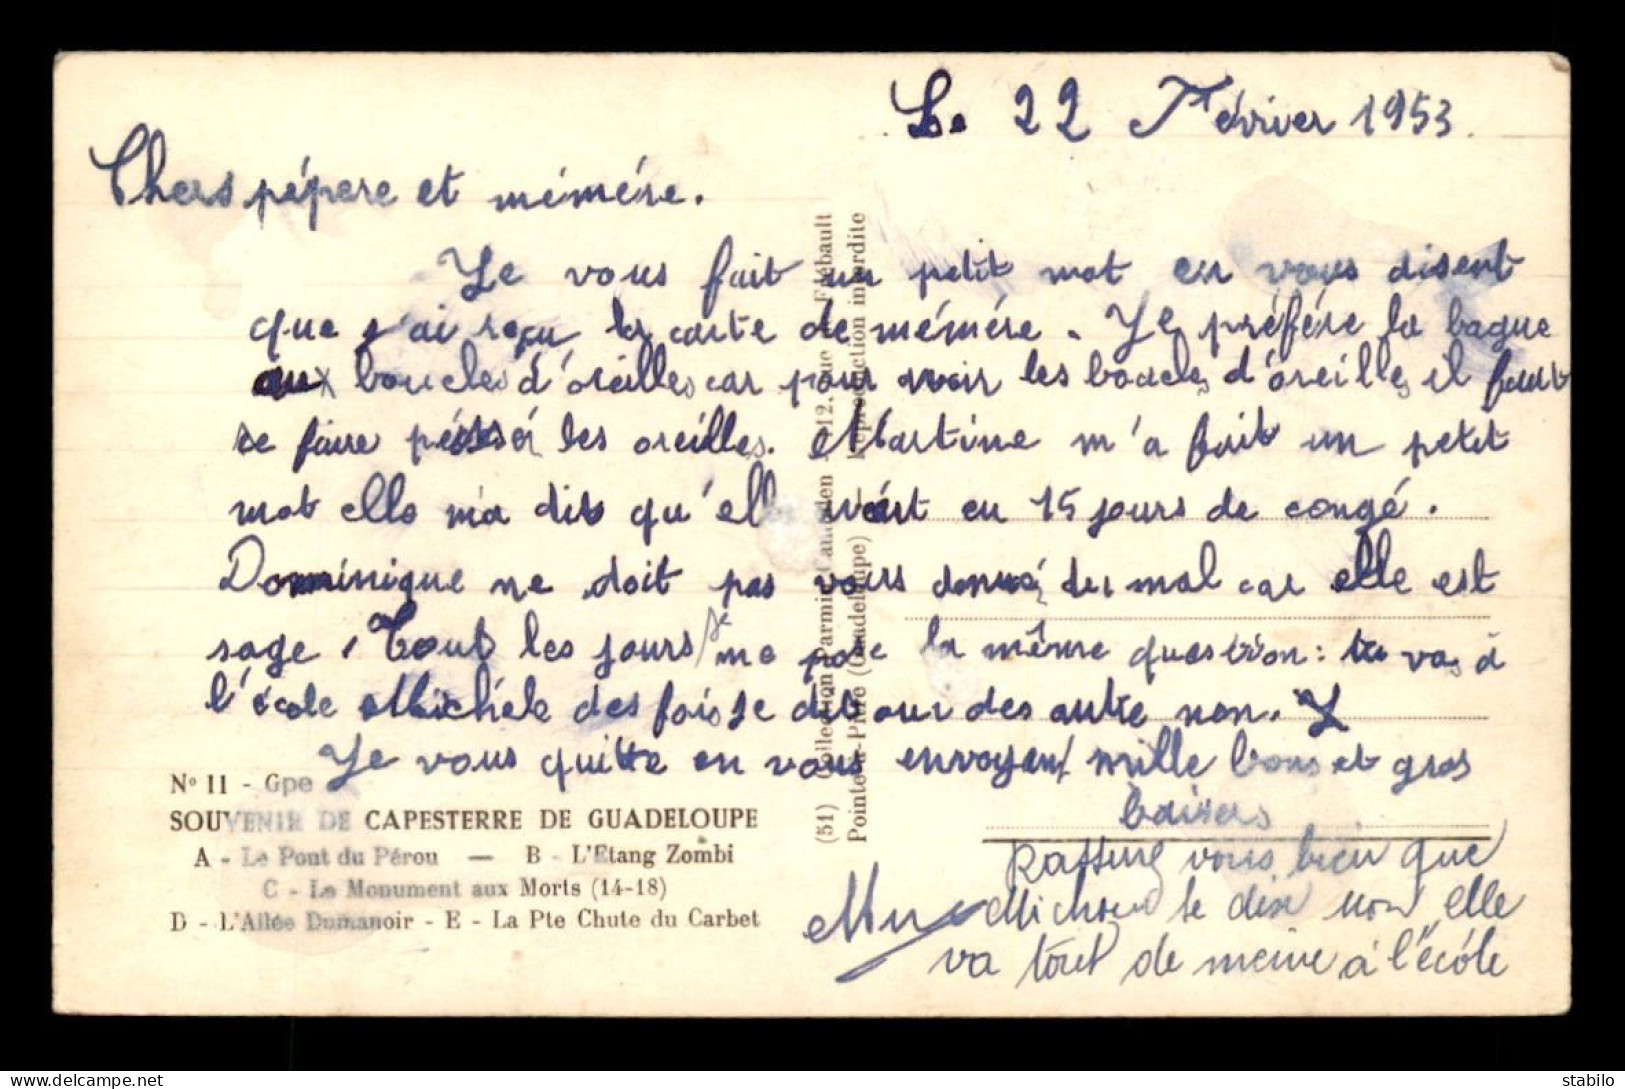 Le 22 Février 1953.
Chers pépere et mémére.
Je vous fait un petit mot en vous disent
que j'ai reçu la carte de mémére. Je préfére la bague
aux boucles d'oreilles car pour avoir les boucles d'oreilles il faut
se faire les oreilles. Martine m'a fait un petit
mot elle m'a dit qu'elle en 15 jours de congé.
Dominique ne doit pas vous donné du mal car elle est
sage. Tout les jours me pose la même question: tu vas à
l'école Michéle des fois je dit oui des autre non.
Je vous quitte en vous envoyent mille bons et gros
baisers
Rassure vous bien que
si le dix non elle
va tout de meme à l'école
N° 11 - Gpe
SOUVENIR DE CAPESTERRE DE GUADELOUPE
A - Le Pont du Pérou — B - L'Etang Zombi
C - Le Monument aux Morts (14-18)
D - L'Allée Dumanoir - E - La Pte Chute du Carbet
(51) Collection Parmi Candéen 12, rue Frébault
Pointe-à-Pitre (Guadeloupe) — Reproduction interdite
stabilo